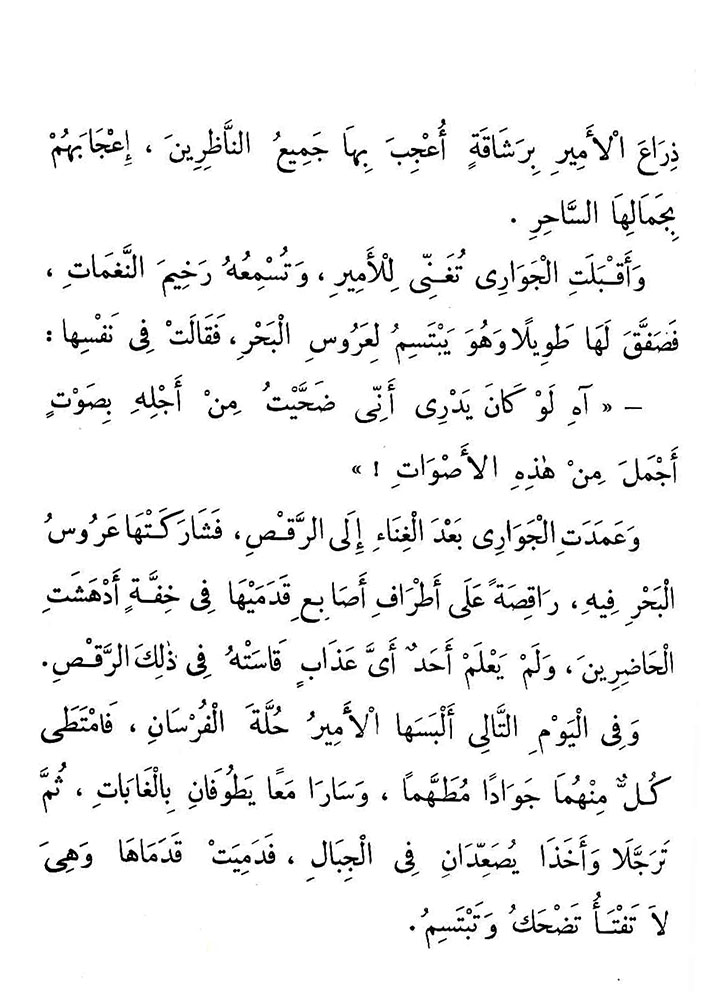 ذِرَاعَ الْأَمِيرِ بِرَشَاقَةٍ أُعْجِبَ بِهَا جَمِيعُ النَّاظِرِينَ ، إِعْجَابَهُمْ
بِجَمَالِهَا السَّاحِرِ .
وَأَقْبَلَتِ الْجَوَارِى تُغَنِّى لِلْأَمِيرِ ، وَتُسْمِعُهُ رَخِيمَ النَّغَمَاتِ ،
فَصَفَّقَ لَهَا طَوِيلًا وَهُوَ يَبْتَسِمُ لِعَرُوسِ الْبَحْرِ ، فَقَالَتْ فِى نَفْسِهَا :
– « آهِ لَوْ كَانَ يَدْرِى أَنِّى ضَحَّيْتُ مِنْ أَجْلِهِ بِصَوْتٍ
أَجْمَلَ مِنْ هٰذِهِ الأَصْوَاتِ ! »
وَعَمَدَتِ الْجَوَارِى بَعْدَ الْغِنَاءِ إِلَى الرَّقْصِ ، فَشَارَكَتْهَا عَرُوسُ
الْبَحْرِ فِيهِ ، رَاقِصَةً عَلَى أَطْرَافِ أَصَابِعِ قَدَمَيْهَا فِى خِفَّةٍ أَدْهَشَتِ
الْحَاضِرِينَ ، وَلَمْ يَعْلَمْ أَحَدٌ أَىَّ عَذَابٍ قَاسَتْهُ فِى ذٰلِكَ الرَّقْصِ .
وَفِى الْيَوْمِ التَّالِى أَلْبَسَهَا الْأَمِيرُ حُلَّةَ الْفُرْسَانِ ، فَامْتَطَى
كُلٌّ مِنْهُمَا جَوَادًا مُطَهَّمًا ، وَسَارَا مَعًا يَطُوفَانِ بِالْغَابَاتِ ، ثُمَّ
تَرَجَّلَا وَأَخَذَا يُصَعِّدَانِ فِى الْجِبَالِ ، فَدَمِيَتْ قَدَمَاهَا وَهِىَ
لاَ تَفْتَأُ تَضْحَكُ وَتَبْتَسِمُ .